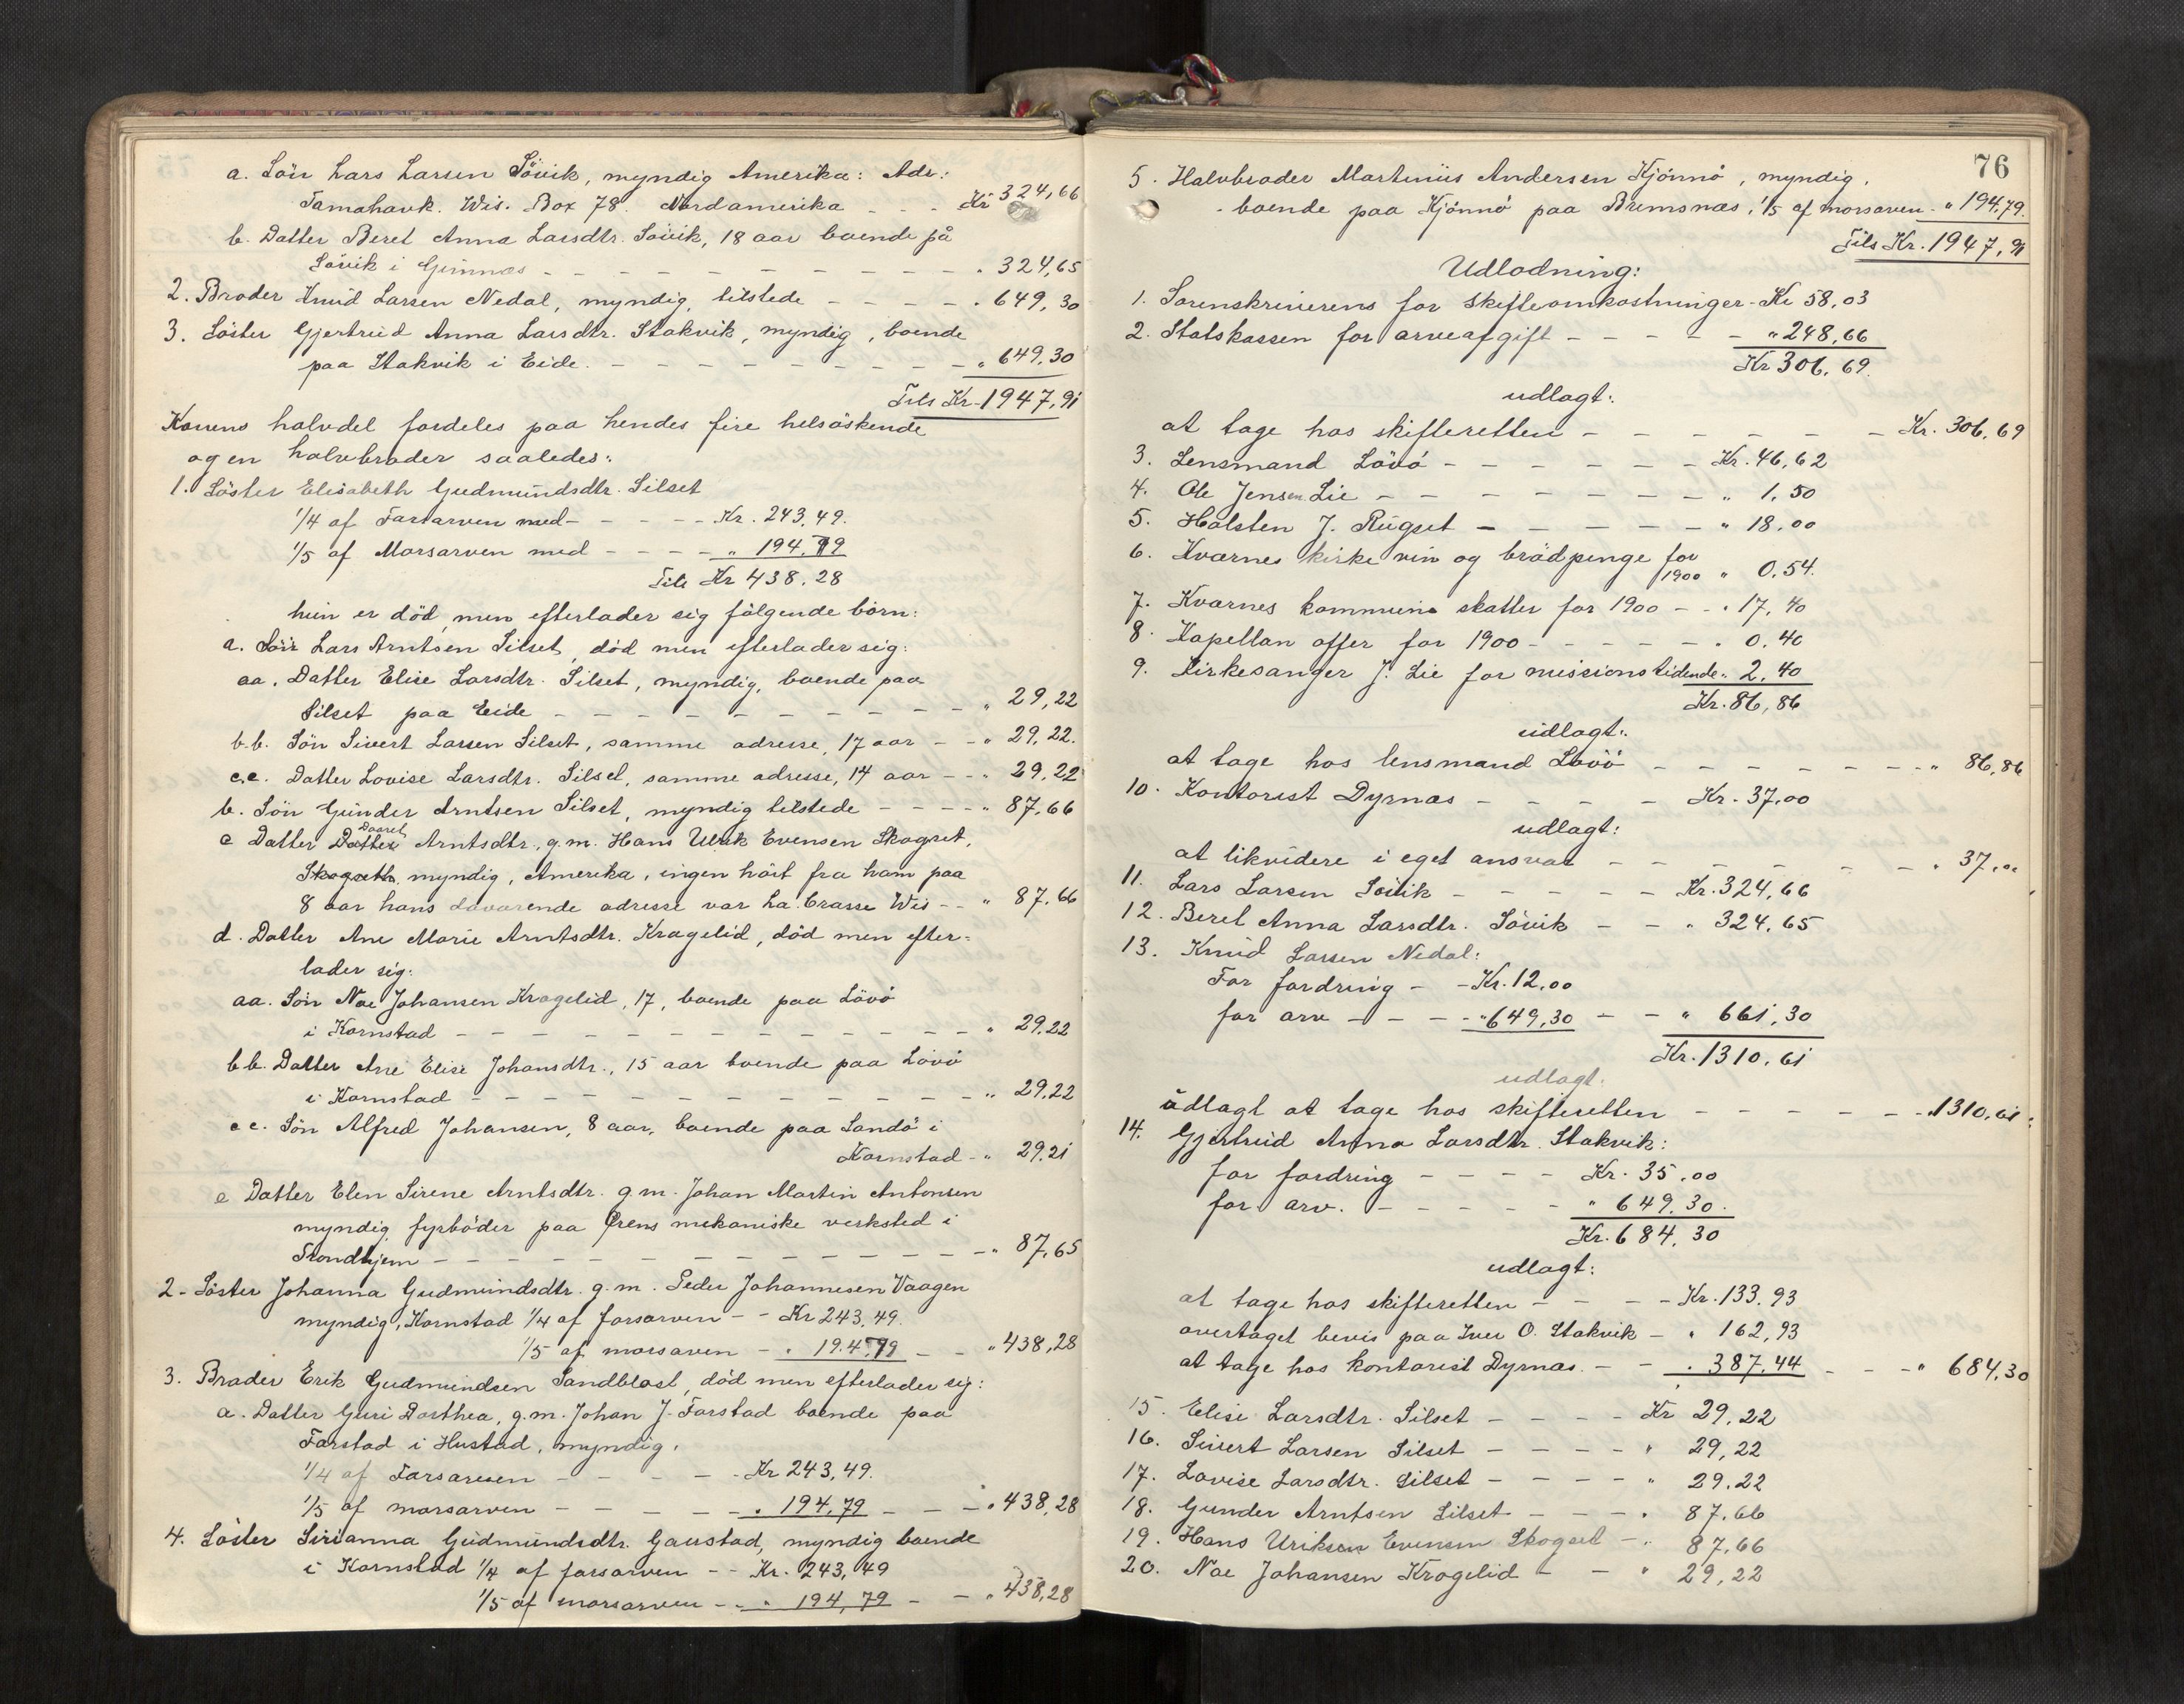 a. Sön Lars Larsen Sövik, myndig Amerika: Adr.:
Tamahavk. Wis. Box 78. Nordamerika - - Kr 324,66
b. Datter Beret Anna Larsdtr. Sövik, 18 aar boende på
Sövik i Gimnæs - - - - - - - - - - " 324,65
2. Broder Knud Larsen Nedal, myndig, tilstede - - - - " 649,30
3. Söster Gjertrud Anna Larsdtr. Stakvik, myndig, boende
paa Stakvik i Eide. - - - - - - - - - " 649,30
Tils Kr. 1947,91
Konens halvdel fordeles paa hendes fire helsöskende
og en halvbroder saaledes:
1. Söster Elisabeth Gudmundsdtr. Silset
1/4 af Farsarven med - - - - Kr. 243,49.
1/5 af Morsarven med - - - - " 194,79
Tils Kr 438,28
hun er död, men efterlader sig fölgende börn:
a. Sön Lars Arntsen Silset, död men efterlader sig:
aa. Datter Elise Larsdtr. Silset, myndig, boende paa
Silset paa Eide - - - - - - - - - - " 29,22
b.b. Sön Sivert Larsen Silset, samme adresse, 17 aar - - " 29,22.
c.c. Datter Lovise Larsdtr. Silset, samme adresse, 14 aar - - " 29,22
b. Sön Gunder Arntsen Silset, myndig tilstede - - - - " 87,66
Daaret
c Datter Datter Arntsdtr., g.m. Hans Ulrik Evensen Skogset,
Skogseth myndig, Amerika, ingen hört fra ham paa
8 aar hans davarende adresse var La Crasse Wis - - " 87,66
d. Datter Ane Marie Arntsdtr. Kragelid, död men efter=
lader sig:
aa. Sön Noe Johansen Kragelid, 17, boende paa Lövö
i Kornstad - - - - - - - - - - - " 29,22
b.b. Datter Ane Elise Johansdtr., 15 aar boende paa Lövö
i Kornstad - - - - - - - - - - - " 29,22
c.c. Sön Alfred Johansen, 8 aar, boende paa Sandö i
Kornstad - " 29,21
e Datter Elen Sirene Arntsdtr. g.m. Johan Martin Antonsen
myndig, fyrböder paa Ørens mekaniske verksted i
Trondhjem - - - - - - - - - - - - " 87,65
2. Söster Johanna Gudmundsdtr. g.m. Peder Johannesen Vaagen
myndig, Kornstad 1/4 af farsarven - - Kr 243,49.
1/5 af morsarven - " 194,79 - - " 438,28
3. Broder Erik Gudmundsen Sandblost, död men efterlader sig:
a. Datter Guri Dorthea, g.m. Johan J. Farstad boende paa
Farstad i Hustad, myndig.
1/4 af Farsarven - - - - Kr 243,49.
1/5 af morsarven - - - - " 194,79 - - - " 438,28
4. Söster Sirianna Gudmundsdtr. Gaustad, myndig boende
i Kornstad 1/4 af farsarven - - Kr. 243,49
1/5 af morsarven - - " 194,79 - - " 438,28
76
5. Halvbroder Martinus Andersen Kjönnö, myndig,
boende paa Kjönnö paa Bremsnæs, 1/5 af morsarven - " 194,79.
Tils Kr. 1947,91
Udlodning:
1. Sorenskriverens for skifteomkostninger - Kr 58,03
2. Statskassen for arveafgift - - - - - " 248,66
Kr 306,69.
udlagt:
at tage hos skifteretten - - - - - - - Kr. 306,69
3. Lensmand Lövö - - - - - - Kr. 46,62
4. Ole Jensen Lie - - - - - - - " 1,50
5. Halsten J. Rugset - - - - - - " 18,00
6. Kværnes kirke vin og brödpenge for
1900 " 0,54.
7. Kværnes kommune skatter for 1900 - - " 17,40
8. Kapellan offer for 1900 - - - - - " 0,40
9. Kirkesanger J. Lie for missionstidende " 2,40
Kr. 86,86
udlagt:
at tage hos lensmand Lövö - - - - - - - - " 86,86
10. Kontorist Dyrnæs - - - - Kr. 37,00
udlagt:
at likvidere i eget ansvar - - - - - - - " 37,00
11. Lars Larsen Sövik - - - - - Kr. 324,66
12. Beret Anna Larsdtr. Sövik - - " 324,65
13. Knud Larsen Nedal:
For fordring - - Kr. 12,00
for arv - - - " 649,30 - - " 661,30
Kr. 1310,61
udlagt:
udlagt at tage hos skifteretten - - - - - - " 1310,61
14. Gjertrud Anna Larsdtr. Stakvik:
for fordring - - - - Kr. 35,00
for arv. - - - - - " 649,30.
Kr. 684,30
udlagt:
at tage hos skifteretten - - - - Kr. 133,93
overtaget bevis paa Iver O. Stakvik - " 162,93
at tage hos kontorist Dyrnæs. - - " 387,44 - - - " 684,30
15. Elise Larsdtr. Silset - - - - Kr 29,22
16. Sivert Larsen Silset - - - - " 29,22
17. Lovise Larsdtr. Silset - - - - " 29,22
18. Gunder Arntsen Silset - - - " 87,66
19. Hans Uriksen Evensen Skogset - " 87,66
20. Noe Johansen Kragelid - - " 29,22